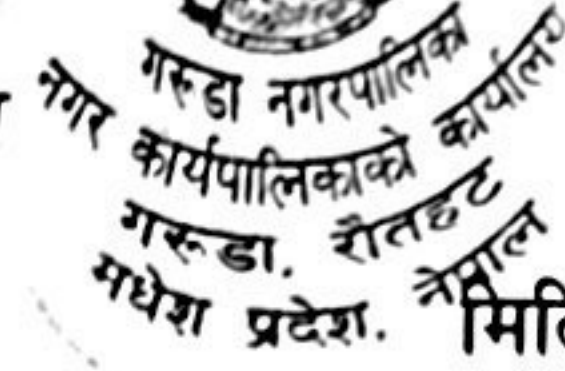 गरुडा नगरपालिका
नगर कार्यपालिकाको कार्यालय
गरूडा. रौतहट
मधेश प्रदेश. नेपाल